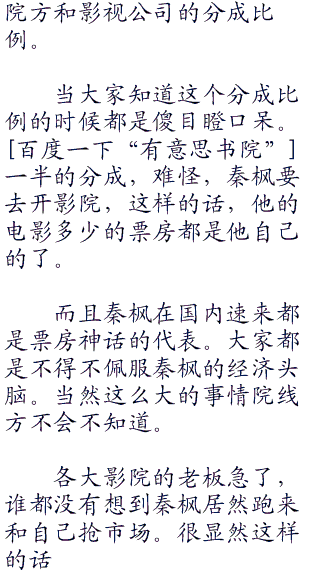 院方和影视公司的分成比
例。
当大家知道这个分成比
例的时候都是傻目瞪口呆。
[百度一下“有意思书院”]
一半的分成，难怪，秦枫要
去开影院，这样的话，他的
电影多少的票房都是他自己
的了。
而且秦枫在国内速来都
是票房神话的代表。大家都
是不得不佩服秦枫的经济头
脑。当然这么大的事情院线
方不会不知道。
各大影院的老板急了，
谁都没有想到秦枫居然跑来
和自己抢市场。很显然这样
的话